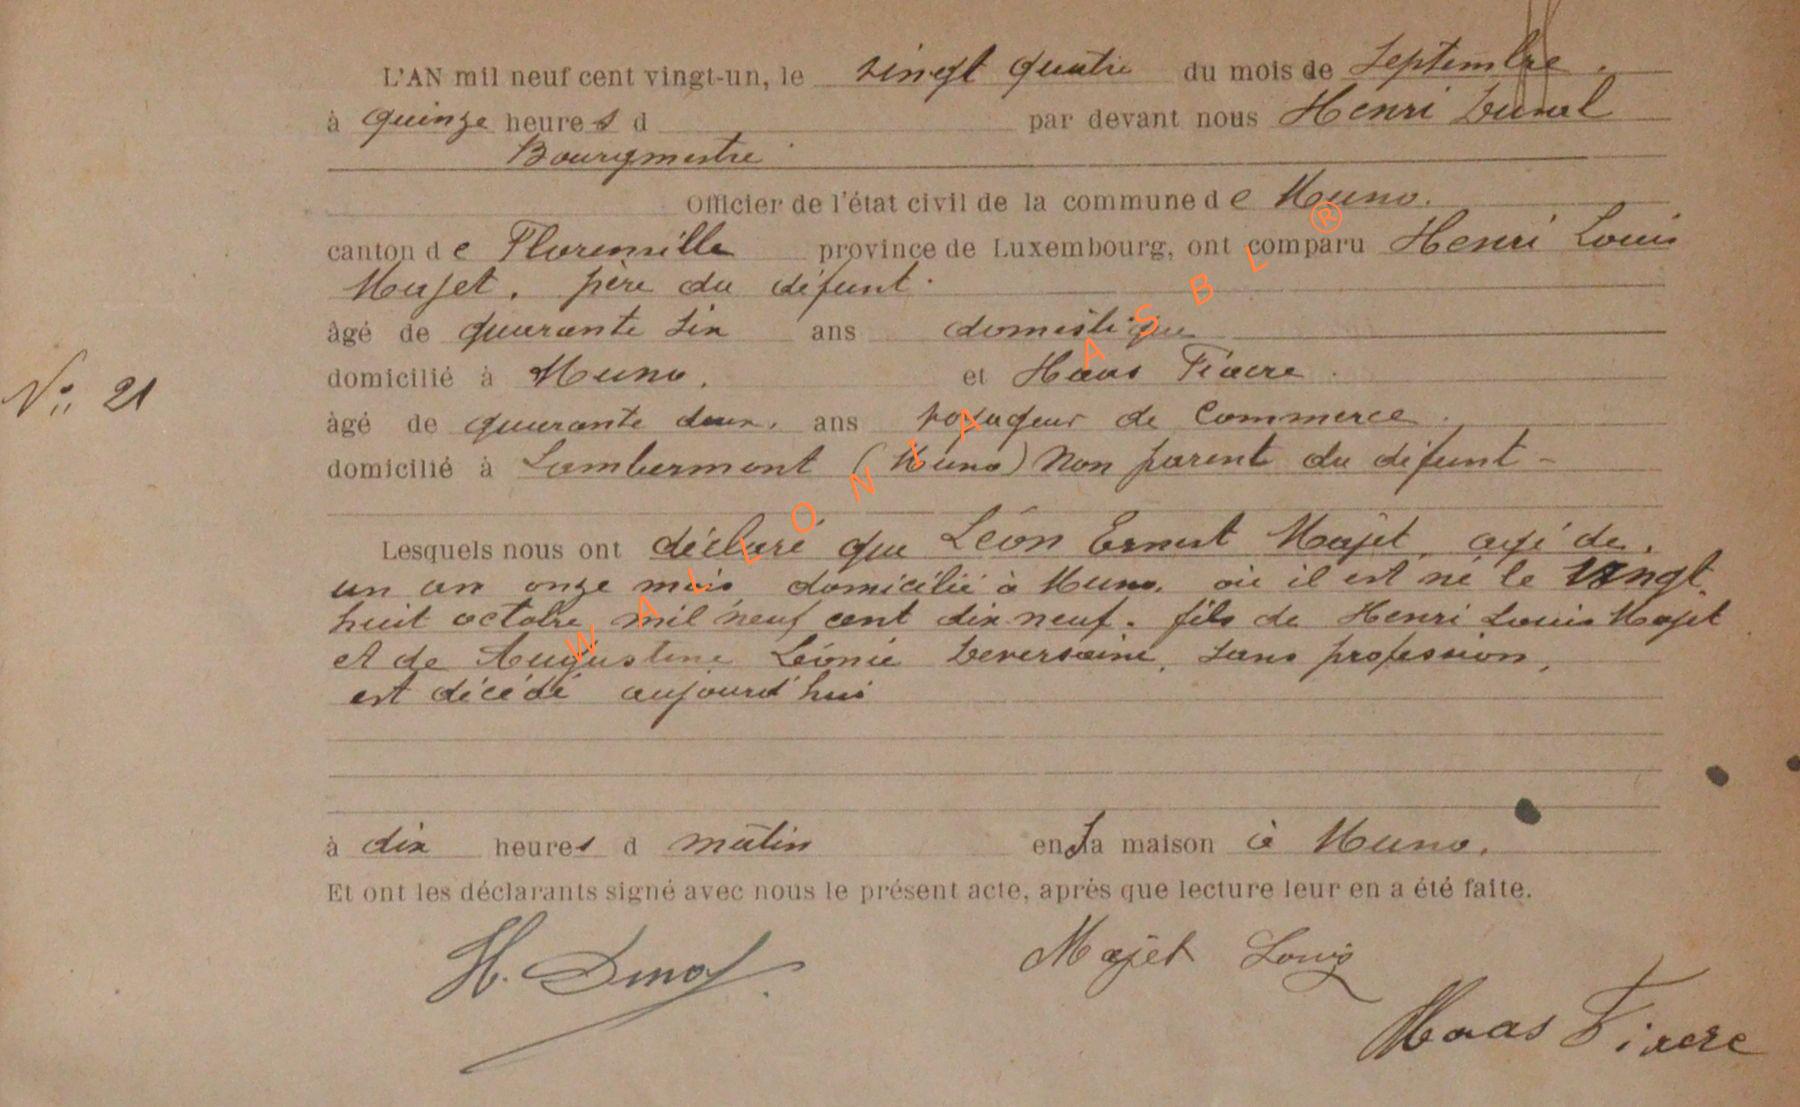 L'AN mil neuf cent vingt-un, le vingt quatre du mois de Septembre.
à quinze heures d par devant nous Henri
Bourgmestre
Officier de l'état civil de la commune de Muno.
canton de Florenville province de Luxembourg, ont comparu Henri Louis
Majet. père du défunt.
âgé de quarante six ans domestique
domicilié à Muno. et Haas Fiacre.
N° 21
âgé de quarante deux. ans voyageur de Commerce.
domicilié à Lambermont (Muno) Non parent du défunt -
Lesquels nous ont déclaré que Léon Ernest Majet, agé de.
un an onze mois domicilié à Muno. où il est né le vingt
huit octobre mil neuf cent dix neuf. fils de Henri Louis Majet
et de Augustine Léonie Deversaine, sans profession,
est décédé aujourd'hui
à dix heures d matin en sa maison à Muno.
Et ont les déclarants signé avec nous le présent acte, après que lecture leur en a été faite.
H.
Majet Louis
Haas Fiacre
WALLONIA ASBL ®